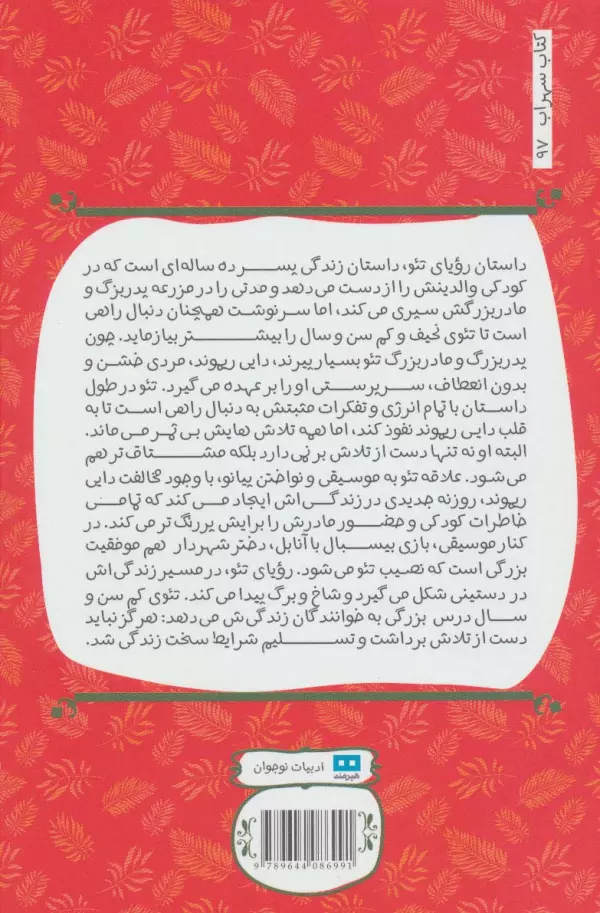 کتاب سهراب ۹۷
داستان رؤیای تئو، داستان زندگی پسر ده ساله‌ای است که در
کودکی والدینش را از دست می‌دهد و مدتی را در مزرعه پدربزگ و
مادربزرگش سپری می‌کند، اما سرنوشت همچنان دنبال راهی
است تا تئوی نحیف و کم سن و سال را بیشتر بیازماید. چون
پدربزرگ و مادربزرگ تئو بسیار پیرند، دایی ریموند، مردی خشن و
بدون انعطاف، سرپرستی او را بر عهده می‌گیرد. تئو در طول
داستان با تمام انرژی و تفکرات مثبتش به دنبال راهی است تا به
قلب دایی ریموند نفوذ کند، اما همه تلاش هایش بی ثمر می ماند.
البته او نه تنها دست از تلاش بر نمی دارد بلکه مشتاق تر هم
می‌شود. علاقه تئو به موسیقی و نواختن پیانو، با وجود مخالفت دایی
ریموند، روزنه جدیدی در زندگی‌اش ایجاد می کند که تمامی
خاطرات کودکی و حضور مادرش را برایش پررنگ تر می کند. در
کنار موسیقی، بازی بیسبال با آنابل، دختر شهردار هم موفقیت
بزرگی است که نصیب تئو می‌شود. رؤیای تئو، در مسیر زندگی‌اش
در دستینی شکل می گیرد و شاخ و برگ پیدا می کند. تئوی کم سن و
سال درس بزرگی به خوانندگان زندگی‌ش می دهد: هرگز نباید
دست از تلاش برداشت و تسلیم شرایط سخت زندگی شد.
هیرمند
ادبیات نوجوان
9 789644 086991